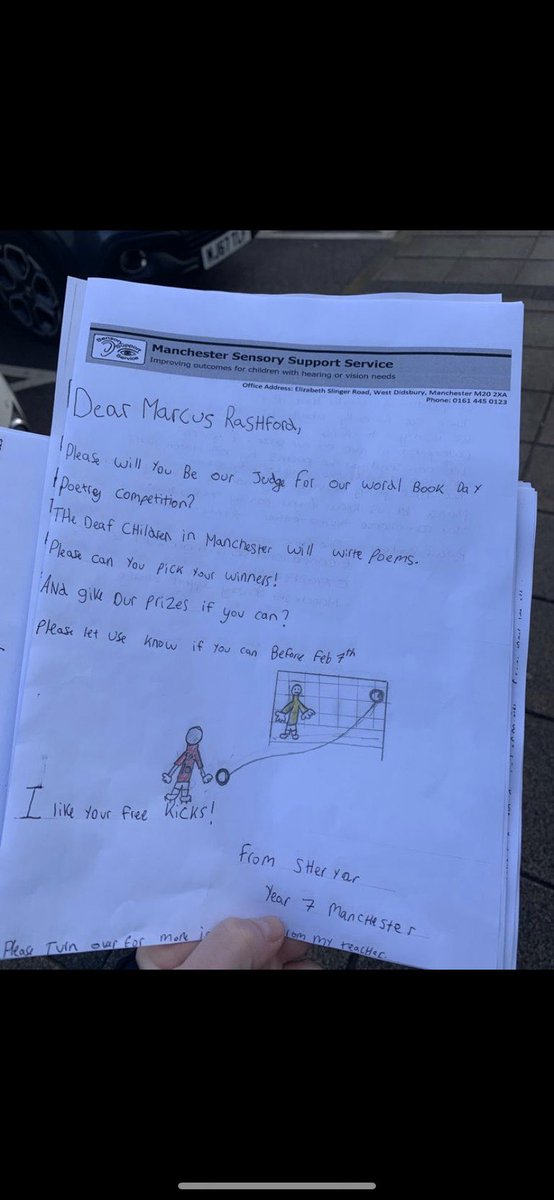 Sensory
Support
Service
Manchester Sensory Support Service
Improving outcomes for children with hearing or vision needs
Office Address: Elizabeth Slinger Road, West Didsbury, Manchester M20 2XA
Phone: 0161 445 0123
Dear Marcus Rashford,
Please will you Be our Judge for our wordl Book Day
Poetrey competition?
THe Deaf CHildren in Manchester will wirte Poems.
Please can you pick your winners!
And give our prizes if you can?
Please let use know if you can Before Feb 7th
I like your free kicks!
From SHeryar
Year 7 Manchester
Please Turn our for more my teacher.